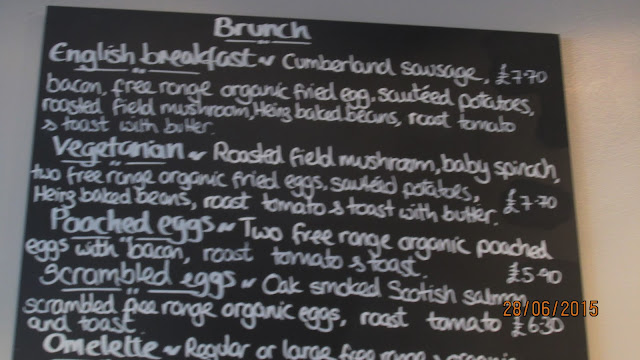 Brunch
English breakfast ~ Cumberland sausage, £7.70
bacon, free range organic fried egg, sautéed potatoes,
roasted field mushroom, Heinz baked beans, roast tomato
& toast with butter.
Vegetarian ~ Roasted field mushroom, baby spinach,
two free range organic fried eggs, sautéed potatoes,
Heinz baked beans, roast tomato & toast with butter. £7.70
Poached eggs ~ Two free range organic poached
eggs with bacon, roast tomato & toast. £5.90
Scrambled eggs ~ Oak smoked Scotish salmon
28/06/2015
scrambled free range organic eggs, roast tomato £6.30
and toast.
Omelette ~ Regular or large free range organic